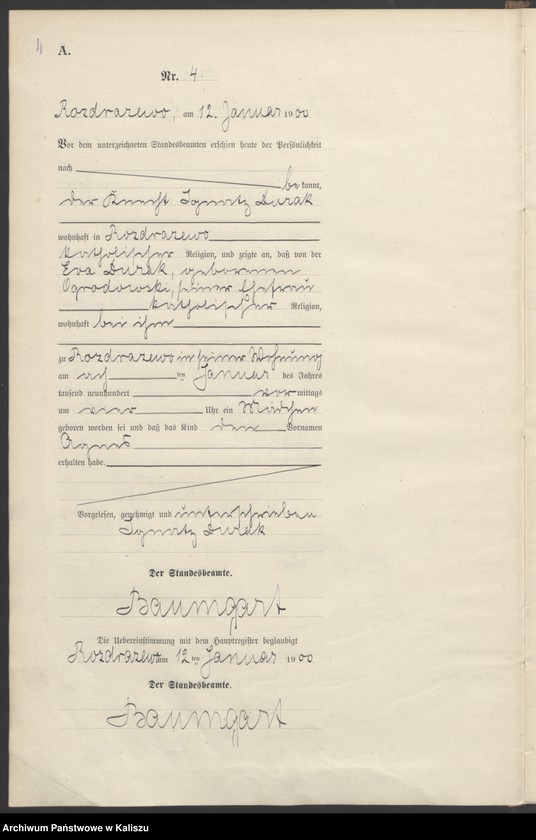 4
A.
Nr. 4.
Rozdrazewo, am 12. Januar 1900
Vor dem unterzeichneten Standesbeamten erschien heute der Persönlichkeit
nach
bekannt,
der Knecht Ignatz Durak
wohnhaft in Rozdrazewo
katholischer Religion, und zeigte an, daß von der
Eva Durak, geborenen
Ogrodowski, seiner Ehefrau
katholischer Religion,
wohnhaft bei ihm
zu Rozdrazewo in seiner Wohnung
am ten Januar des Jahres
tausend neunhundert vormittags
um vier Uhr ein Mädchen
geboren worden sei und daß das Kind den Vornamen
Agnes
erhalten habe.
Vorgelesen, genehmigt und unterschrieben
Ignatz Durak
Der Standesbeamte.
Baumgart
Die Uebereinstimmung mit dem Hauptregister beglaubigt
Rozdrazewo am 12 ten Januar 1900
Der Standesbeamte.
Baumgart
Archiwum Państwowe w Kaliszu